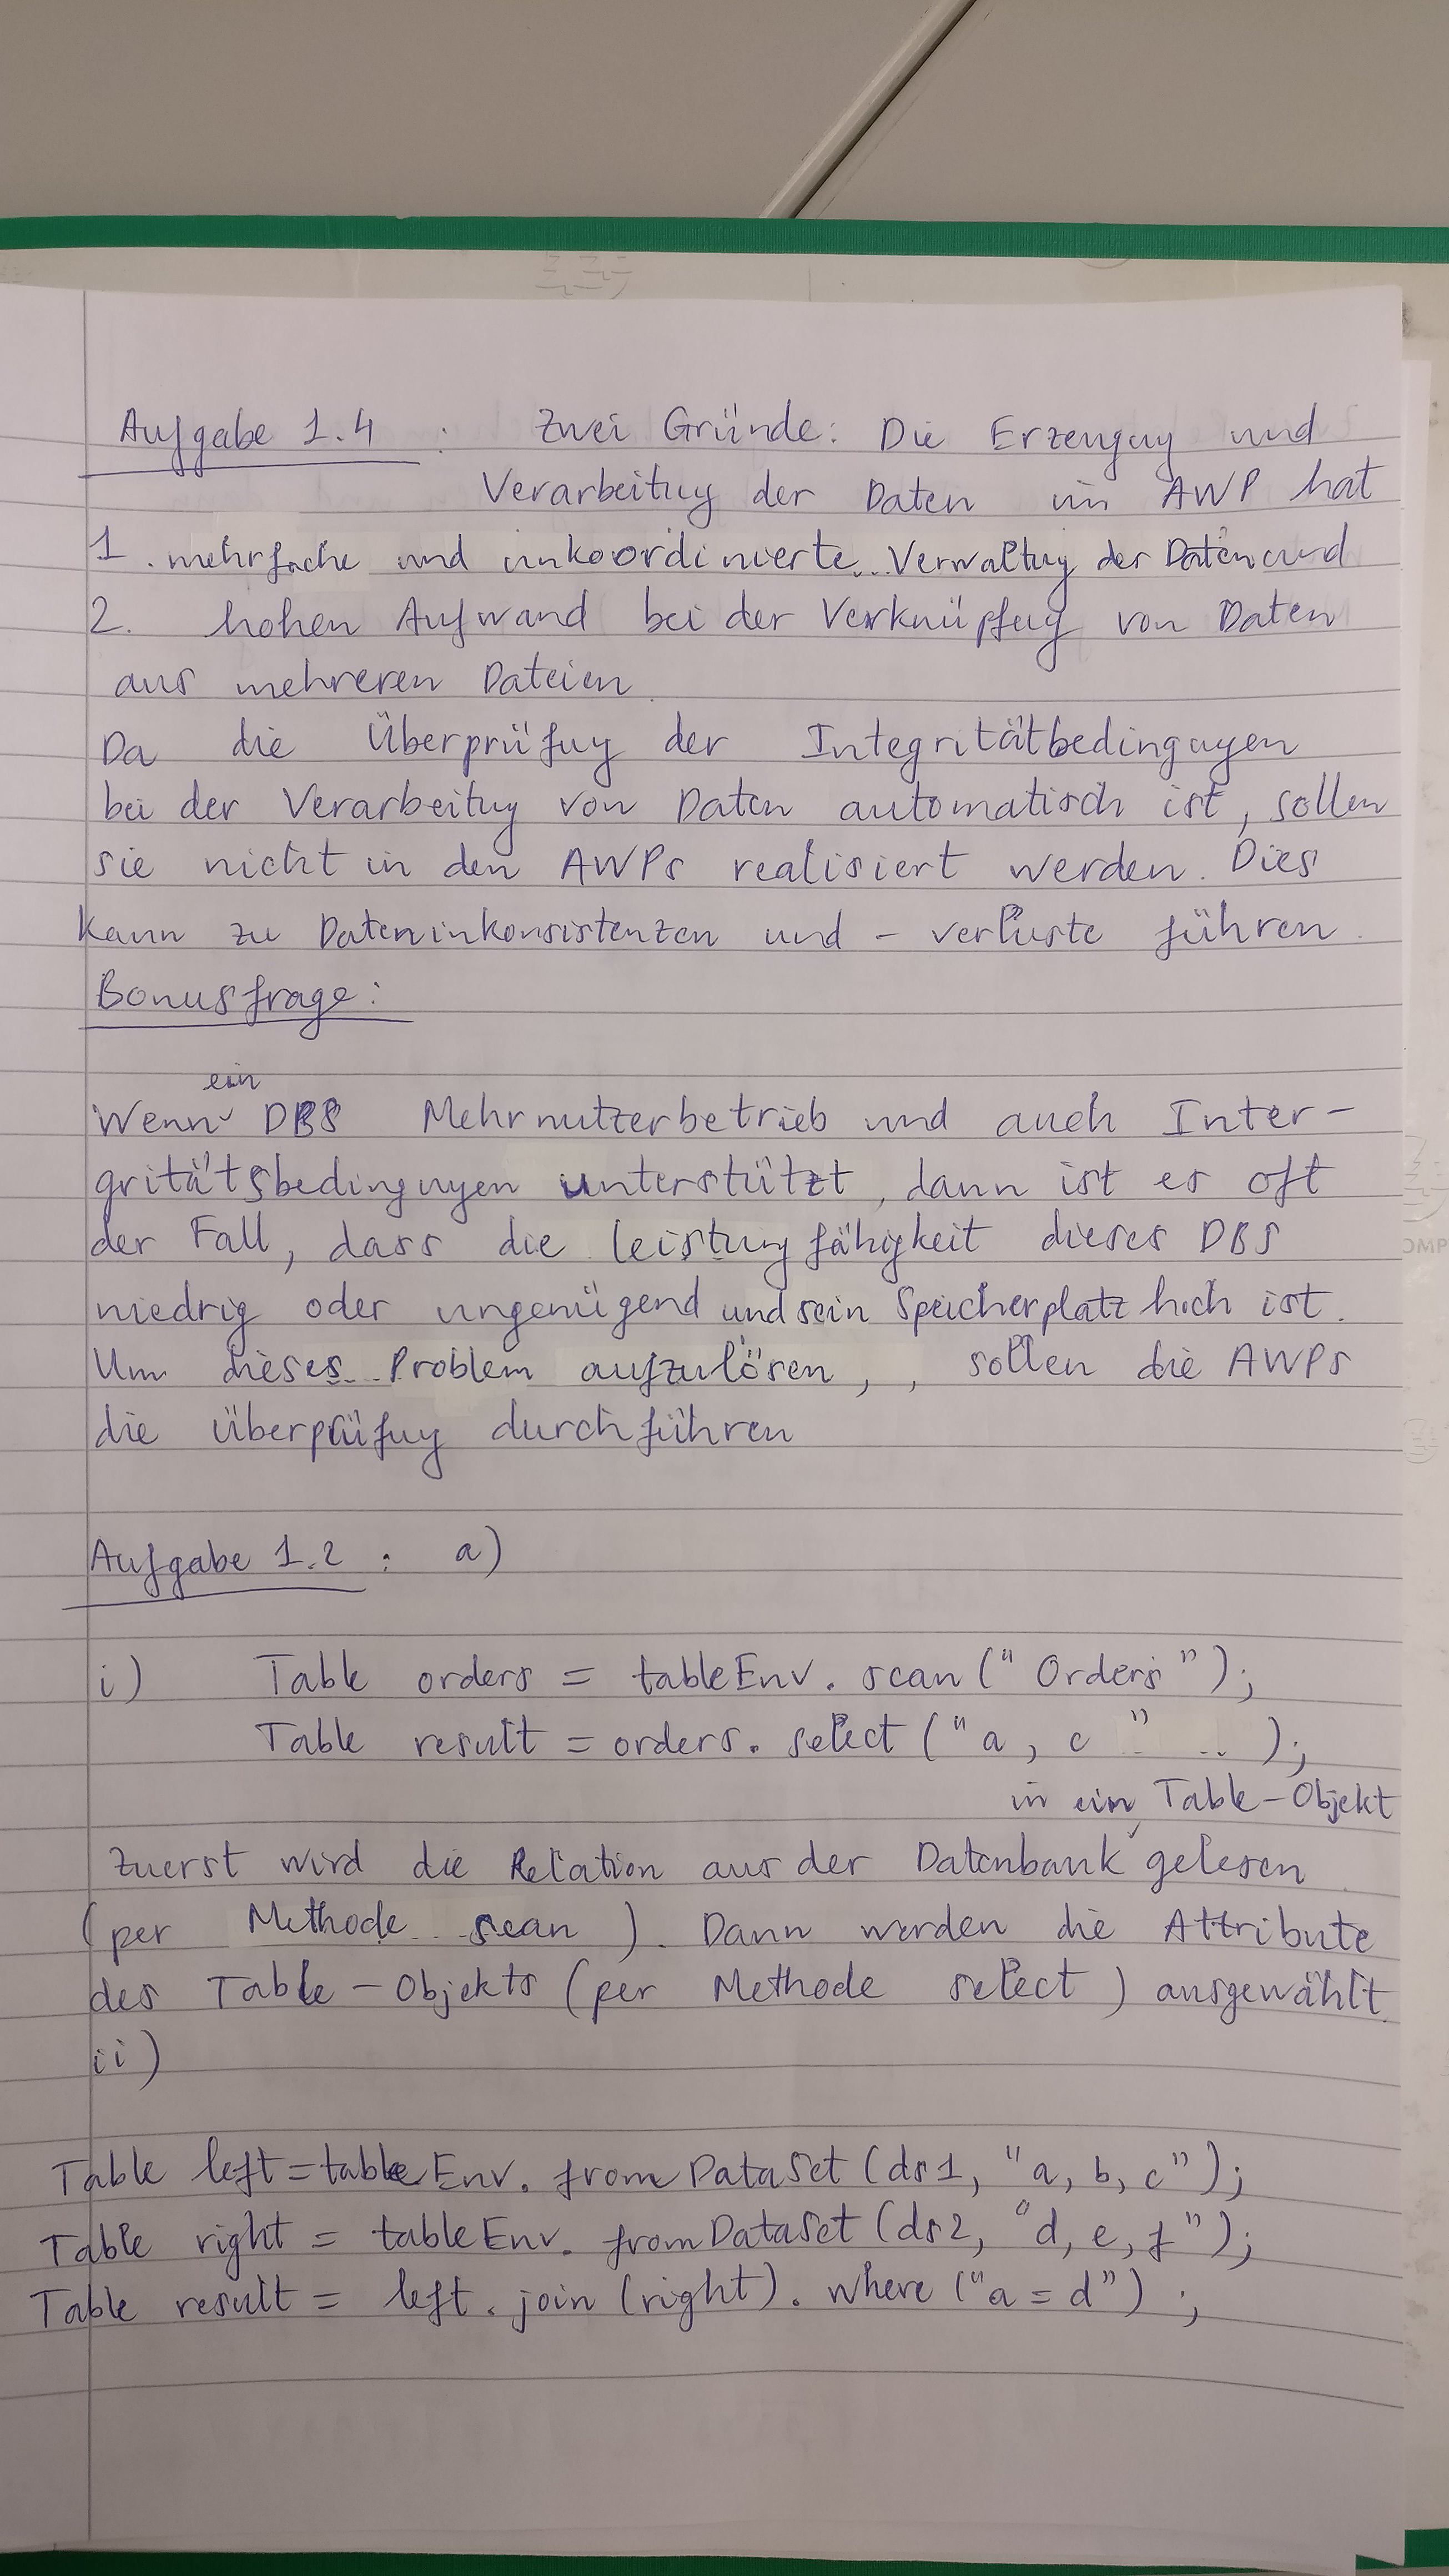 Aufgabe 1.4 : Zwei Gründe: Die Erzeugung und
Verarbeitung der Daten im AWP hat
1. mehrfache und unkoordinierte Verwaltung der Daten und
2. hohen Aufwand bei der Verknüpfung von Daten
aus mehreren Dateien
Da die Überprüfung der Integritätbedingungen
bei der Verarbeitung von Daten automatisch ist, sollen
sie nicht in den AWPs realisiert werden. Dies
kann zu Dateninkonsistenzen und -verluste führen.
Bonusfrage:
ein
Wenn DBS Mehrnutzerbetrieb und auch Inter-
gritätsbedingungen unterstützt, dann ist es oft
der Fall, dass die leistungfähigkeit dieses DBS
niedrig oder ungenügend und sein Speicherplatz hoch ist.
Um dieses Problem aufzulösen, , sollen die AWPs
die Überprüfung durchführen
Aufgabe 1.2 : a)
i) Table orders = tableEnv.scan("Orders");
Table result = orders.select("a, c");
in ein Table-Objekt
Zuerst wird die Relation aus der Datenbank gelesen
(per Methode scan). Dann werden die Attribute
des Table-Objekts (per Methode select) ausgewählt.
ii)
Table left = tableEnv.fromDataSet(ds1, "a, b, c");
Table right = tableEnv.fromDataSet(ds2, "d, e, f");
Table result = left.join(right).where("a = d");